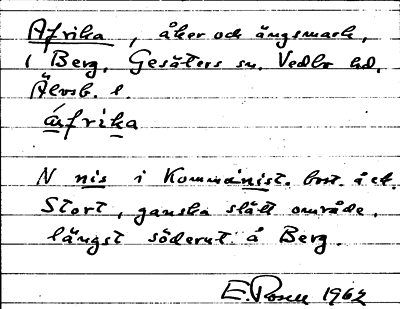 Afrika, åker och ängsmark,
i Berg, Gesäters sn. Vedbo hd.
Älvsb. l.
áfrika
N nis i Kommúnist. bort. å et.
Stort, ganska slätt område,
längst söderut å Berg.
E. Rosen 1962